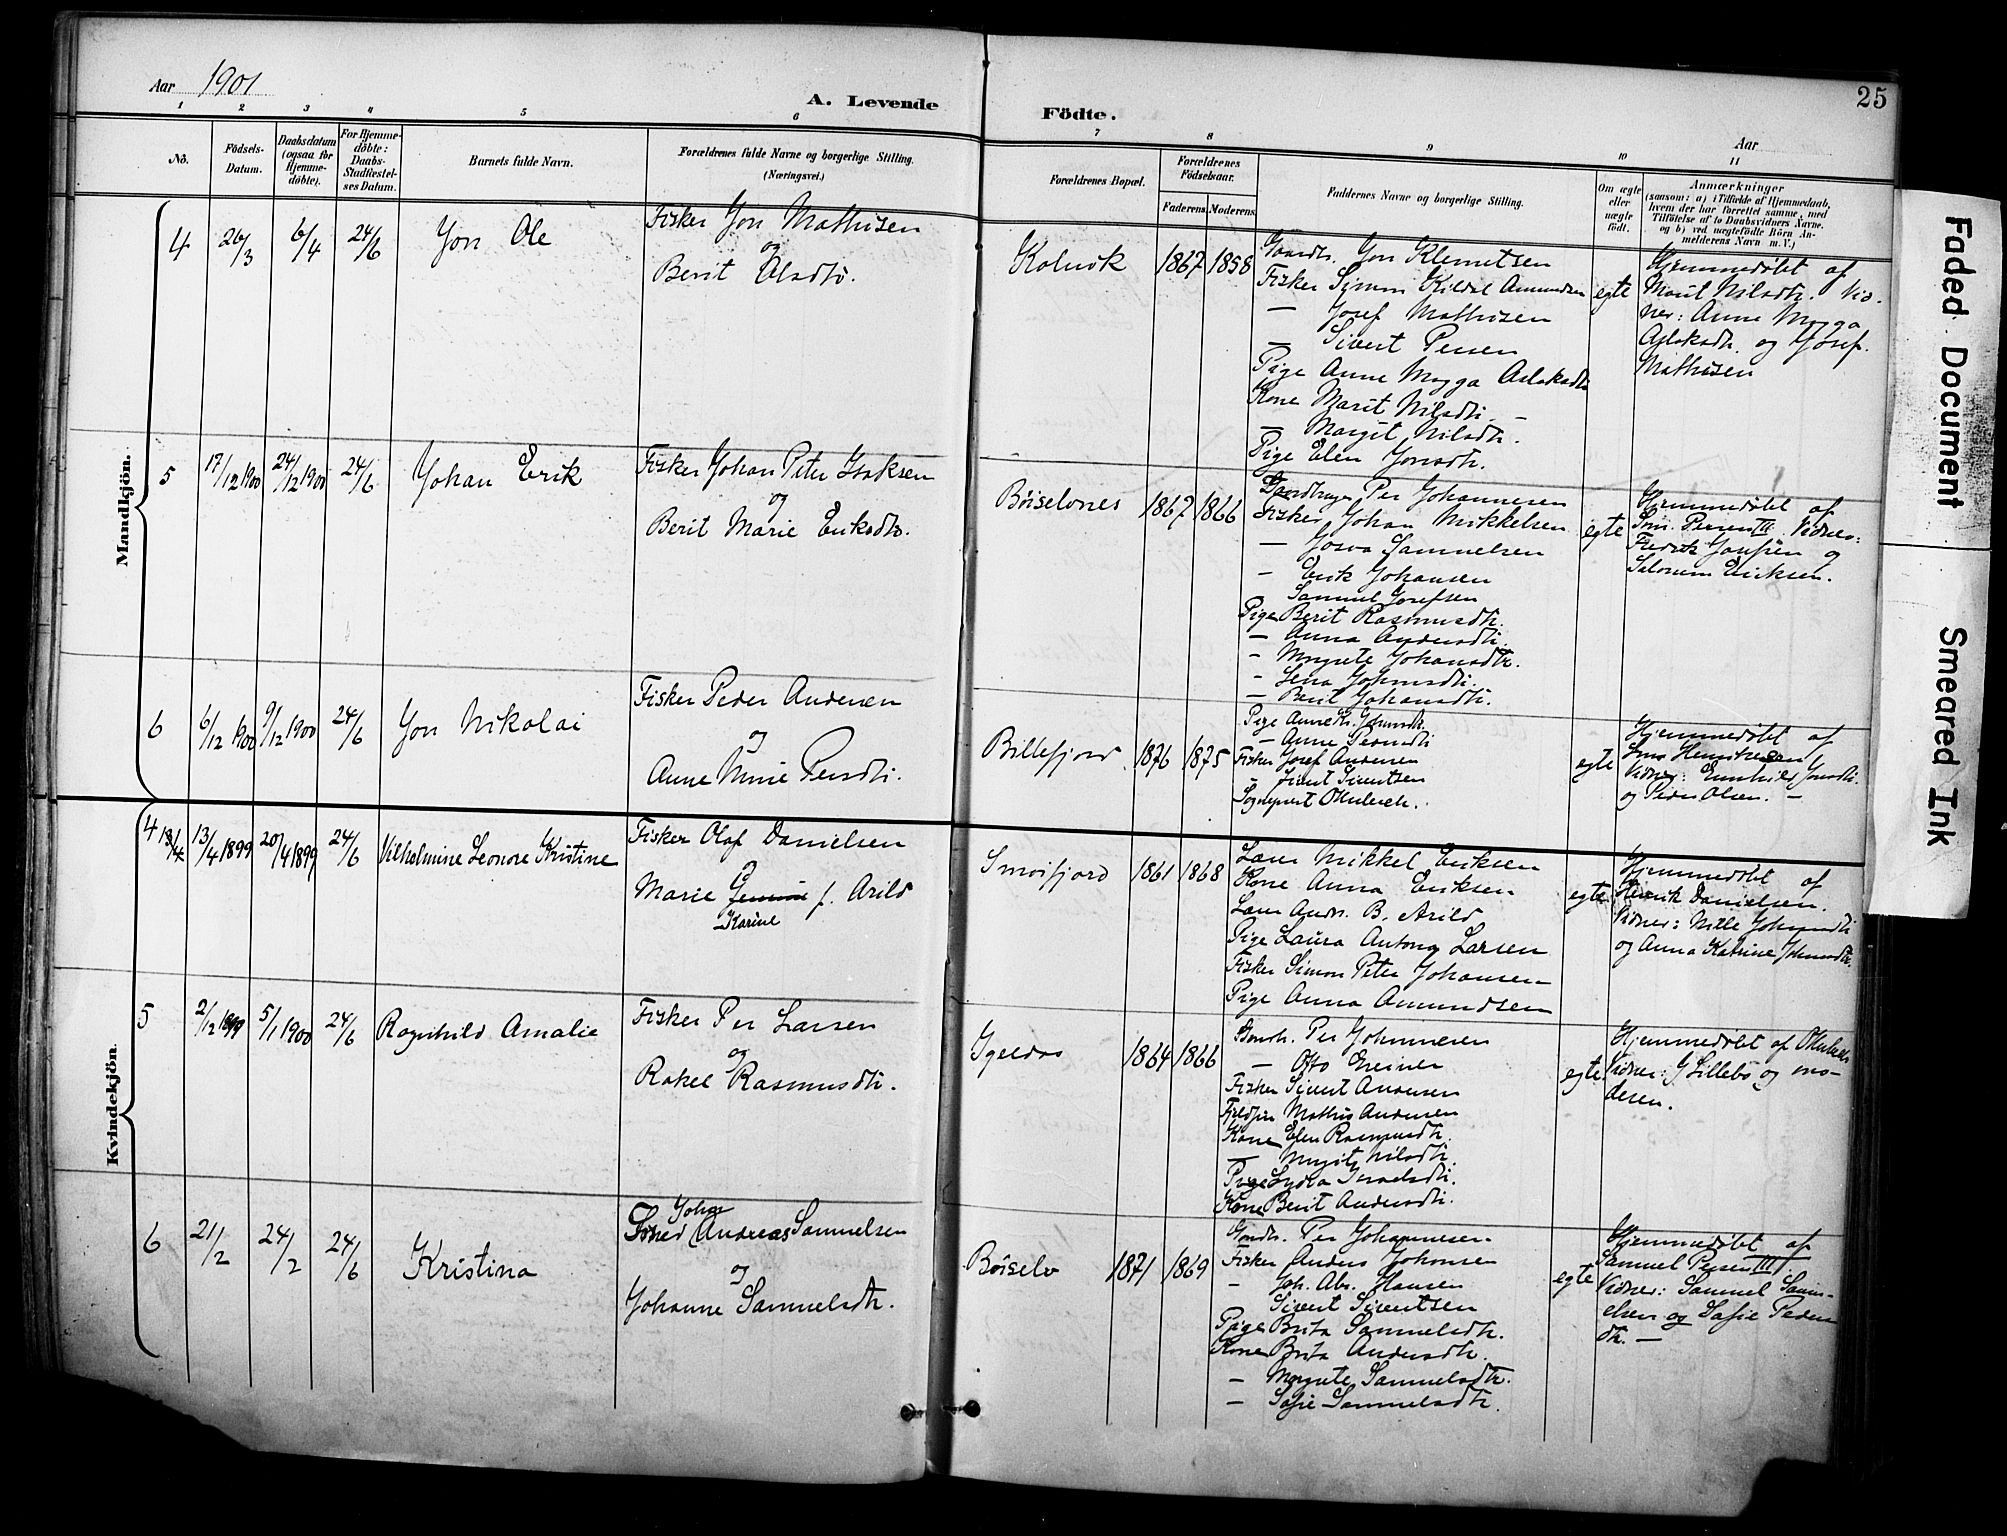 Aar 1901
A. Levende
Födte.
Aar
25
1 2 3 4 5 6 7 8 9 10 11
No.
Födsels-Datum.
Daabsdatum (ogsaa for Hjemme-döbte).
For Hjemme-döbte: Daabs-Stadfæstel-ses Datum.
Barnets fulde Navn.
Forældrenes fulde Navne og borgerlige Stilling.
(Næringsvei.)
Forældrenes Bopæl.
Forældrenes Födselsaar.
Faderens. Moderens.
Faddernes Navne og borgerlige Stilling.
Om ægte eller uægte födt.
Anmærkninger
(saasom: a) i Tilfælde af Hjemmedaab, hvem der har forrettet samme, med Tilföielse af to Daabsvidners Navne. og b) ved uægtefödte Börn An-melderens Navn m. V.)
Mandkjön.
4 26/3 6/4 24/6 Jon Ole
Fisker Jon Mathisen
og
Berit Olsdtr.
Kolvik 1867 1858
Gaardbr. Jon Klemetsen
Fisker Simon Kildal Amundsen
— Josef Mathisen
— Sivert Persen
Pige Anne Magga Aslaksdtr
Kone Marit Nilsdtr —
— Margit Nilsdtr.
Pige Elen Jonsdtr.
egte
Hjemmedøbt af
Marit Nilsdtr. Vid-
ner: Anne Magga
Aslaksdtr. og Josef
Mathisen
5 17/12 1900 24/12 1900 24/6 Johan Erik
Fisker Johan Peter Isaksen
og
Berit Marie Eriksdtr.
Børselvnes 1867 1866
Gaardbruger Per Johannesen
Fisker Johan Mikkelsen
— Josva Samuelsen
— Erik Johansen
Samuel Josefsen
Pige Berit Rasmusdtr.
— Anna Andersdtr.
— Magrete Johansdtr.
— Lena Johansdtr.
— Berit Johansdtr.
egte
Hjemmedøbt af
Sam. Persen III. Vidner:
Fredrik Josefsen og
Salomon Eriksen.
6 6/12 1900 9/12 1900 24/6 Jon Nikolai
Fisker Peder Andersen
og
Anne Marie Persdtr.
Billefjord 1876 1875
Pige Johansdtr.
— Anne Persdtr
Fisker Josef Andersen
— Sivert Sivertsen
Sogneprest Otterbech.
egte
Hjemmedøbt af
Henriksen
Vidner: Jonsdtr.
og Peder Olsen. —
Kvindekjön.
4 13/4 13/4 1899 20/4 1899 24/6 Vilhelmine Leonore Kristine
Fisker Olaf Danielsen
Marie f. Arild
Karine
Smørfjord 1861 1868
Lærer Mikkel Eriksen
Kone Anna Eriksen
Lærer Andr. B. Arild
Pige Laura Antona Larsen
Fisker Simon Peter Johansen
Pige Anna Amundsen
egte
Hjemmedøbt af
Henrik Danielsen.
Vidner: Nille Johansdtr
og Anna Katrine Johansdtr.
5 2/12 1899 5/1 1900 24/6 Ragnhild Amalie
Fisker Per Larsen
og
Rakel Rasmusdtr.
Igeldas 1864 1866
Gaardb. Per Johannesen
— Otto Greiner
Fisker Sivert Andersen
Fjeldfin Mathis Andersen
Kone Elen Rasmusdtr.
— Margit Nilsdtr.
Pige Lydia Israelsdtr.
Kone Berit Andersdtr.
egte
Hjemmedøbt af Otterbech
Vidner: G Lillebo og mo-
deren.
6 21/2 24/2 24/6 Kristina
Johan
Fisker Andreas Samuelsen
og
Johanne Samuelsdtr.
Børselv 1871 1869
Gaardb. Per Johannesen
Fisker Anders Johansen
— Joh. Abr. Hansen
Sivert Sivertsen
Pige Brita Samuelsdtr.
Kone Brita Andersdtr.
— Magrete Samuelsdtr.
— Sofie Samuelsdtr.
egte
Hjemmedøbt af
Samuel Persen III.
Vidner: Samuel Samu-
elsen og Sofie Peders
dtr. —
Faded Document
Smeared Ink